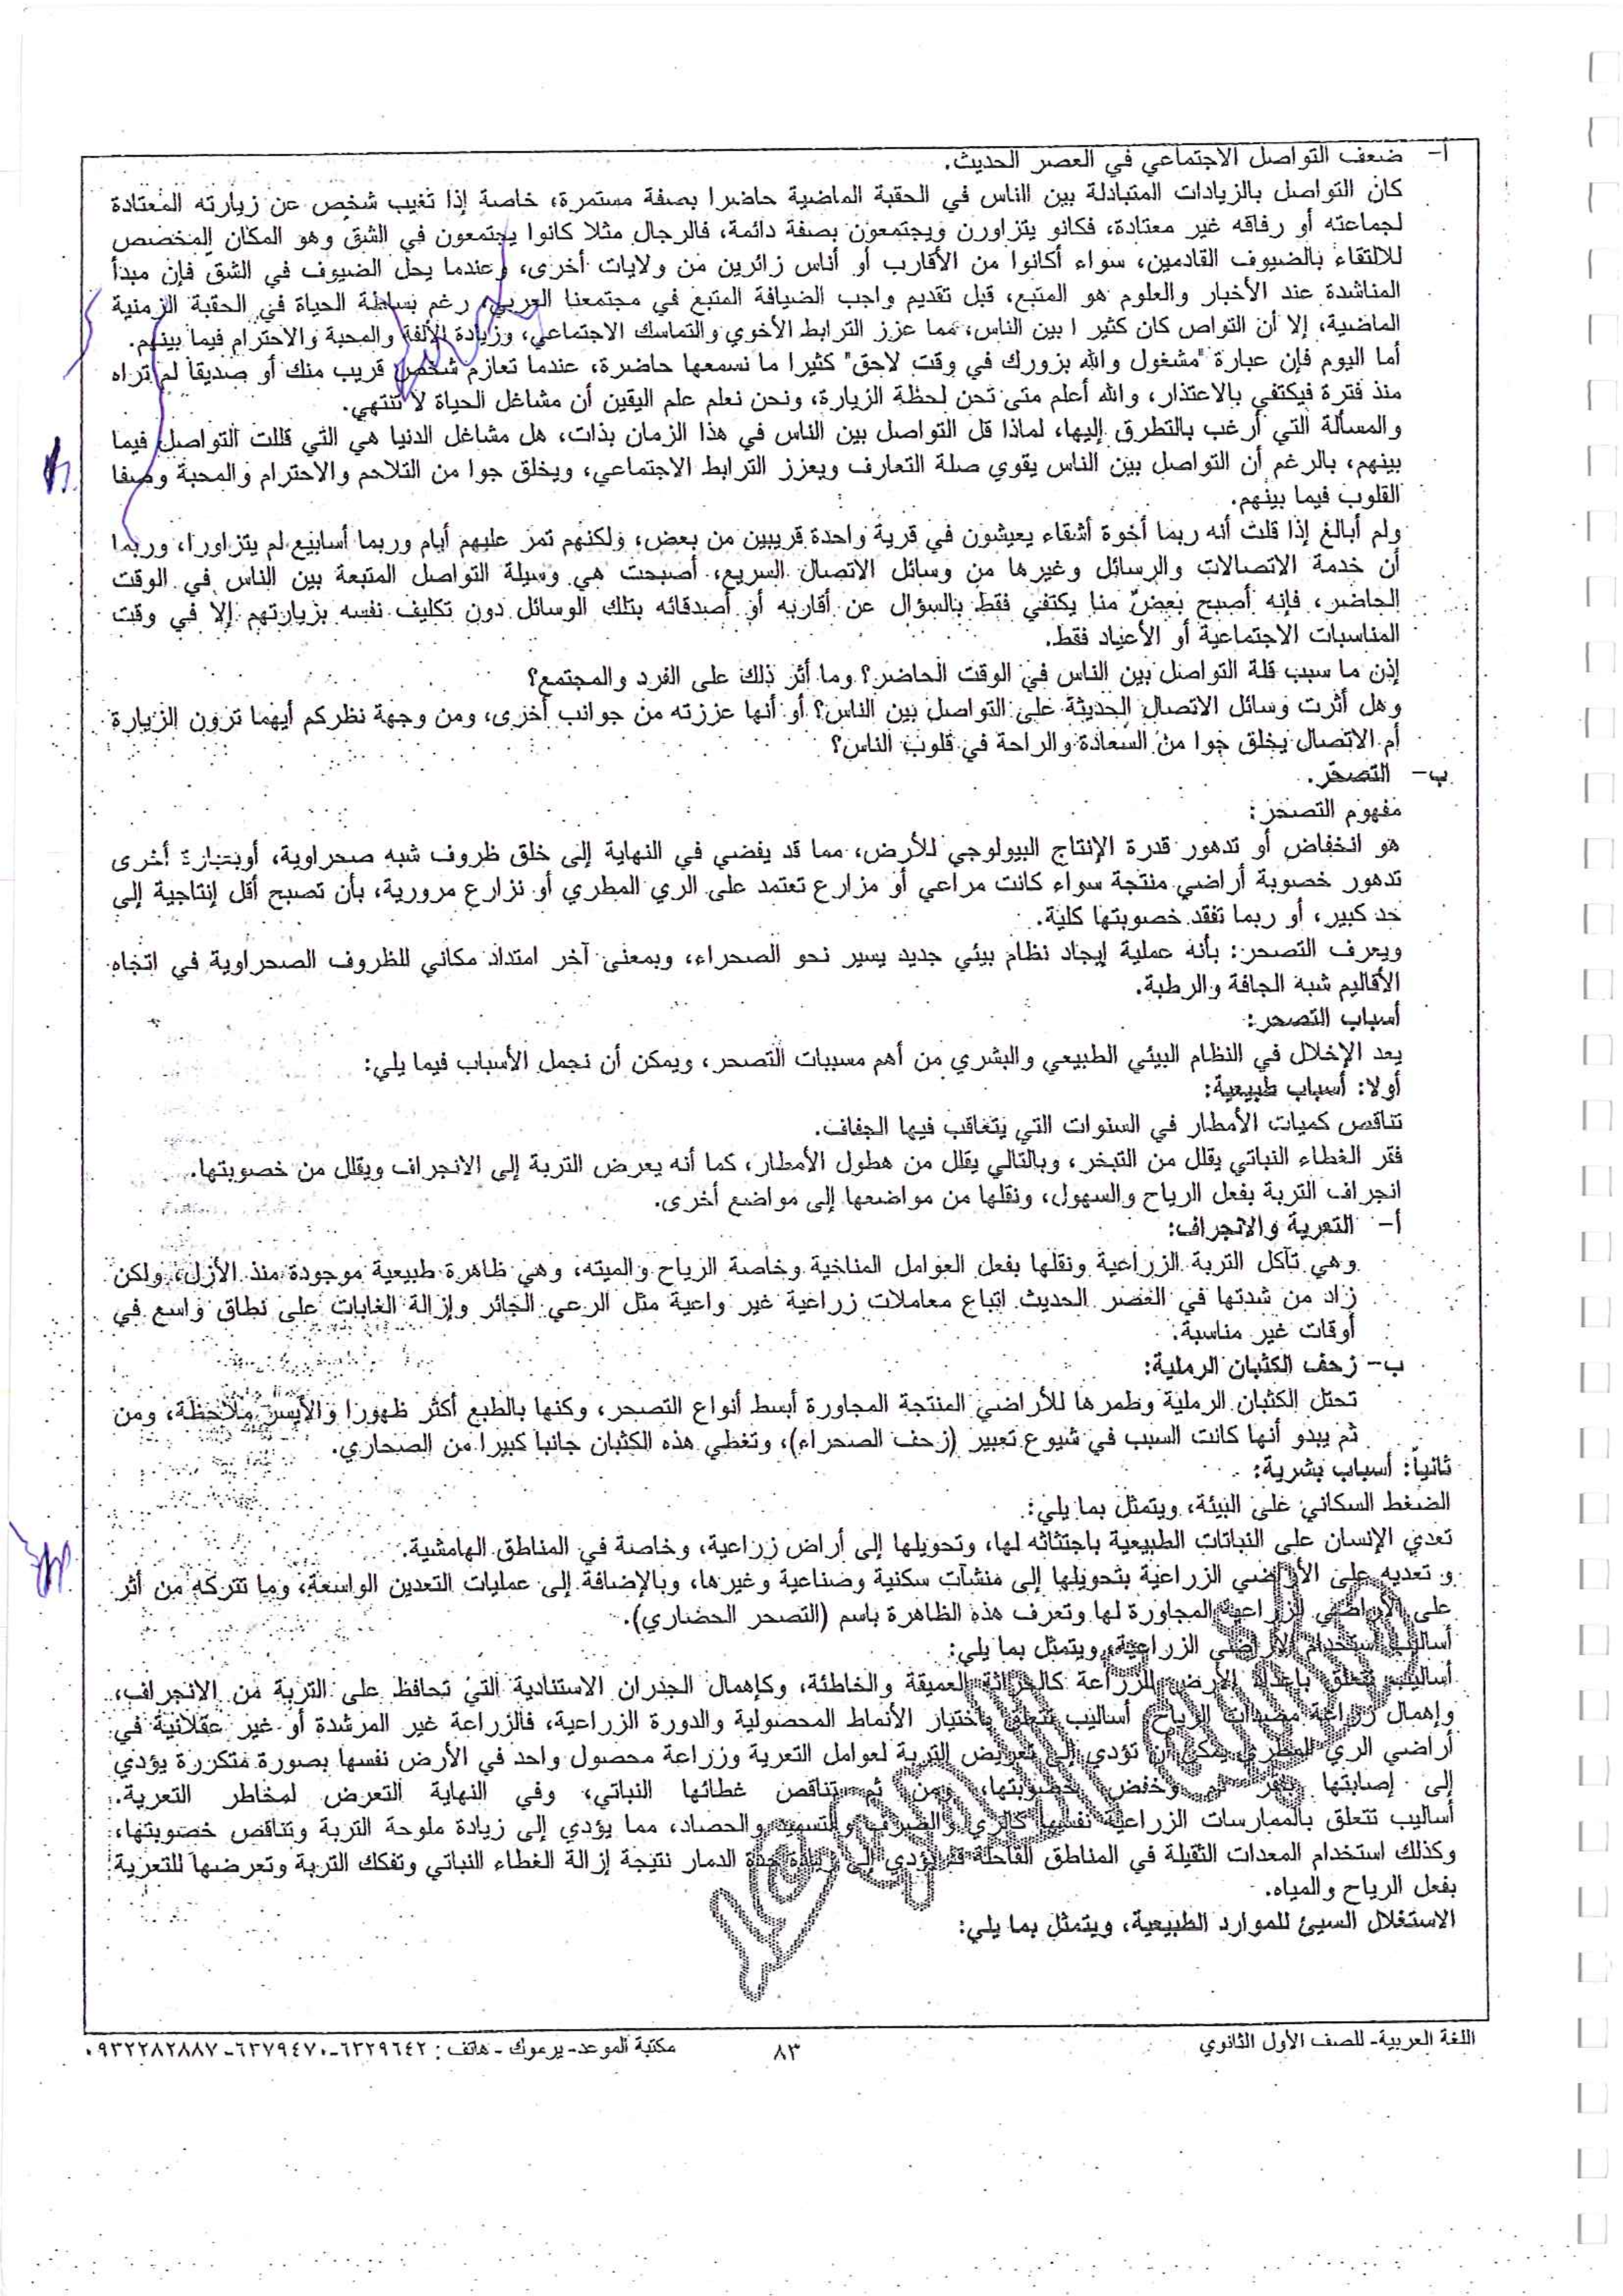 أ- ضعف التواصل الاجتماعي في العصر الحديث.
كان التواصل بالزيادات المتبادلة بين الناس في الحقبة الماضية حاضرا بصفة مستمرة، خاصة إذا تغيب شخص عن زيارته المعتادة
لجماعته أو رفاقه غير معتادة، فكانو يتزاورن ويجتمعون بصفة دائمة، فالرجال مثلا كانوا يجتمعون في الشق وهو المكان المخصص
للالتقاء بالضيوف القادمين، سواء أكانوا من الأقارب أو أناس زائرين من ولايات أخرى، وعندما يحل الضيوف في الشق فإن مبدأ
المناشدة عند الأخبار والعلوم هو المتبع، قبل تقديم واجب الضيافة المتبع في مجتمعنا العربي، رغم بساطة الحياة في الحقبة الزمنية
الماضية، إلا أن التواص كان كثير ا بين الناس، مما عزز الترابط الأخوي والتماسك الاجتماعي، وزيادة الألفة والمحبة والاحترام فيما بينهم.
أما اليوم فإن عبارة "مشغول والله بزورك في وقت لاحق" كثيرا ما نسمعها حاضرة، عندما تعازم شخص قريب منك أو صديقا لم تراه
منذ فترة فيكتفي بالاعتذار، والله أعلم متى تحن لحظة الزيارة، ونحن نعلم علم اليقين أن مشاغل الحياة لا تنتهي.
والمسألة التي أرغب بالتطرق إليها، لماذا قل التواصل بين الناس في هذا الزمان بذات، هل مشاغل الدنيا هي التي قللت التواصل فيما
بينهم، بالرغم أن التواصل بين الناس يقوي صلة التعارف ويعزز الترابط الاجتماعي، ويخلق جوا من التلاحم والاحترام والمحبة وصفا
القلوب فيما بينهم.
ولم أبالغ إذا قلت أنه ربما أخوة أشقاء يعيشون في قرية واحدة قريبين من بعض، ولكنهم تمر عليهم أيام وربما أسابيع لم يتزاورا، وربما
أن خدمة الاتصالات والرسائل وغيرها من وسائل الاتصال السريع، أصبحت هي وسيلة التواصل المتبعة بين الناس في الوقت
الحاضر، فإنه أصبح بعض منا يكتفي فقط بالسؤال عن أقاربه أو أصدقائه بتلك الوسائل دون تكليف نفسه بزيارتهم إلا في وقت
المناسبات الاجتماعية أو الأعياد فقط.
إذن ما سبب قلة التواصل بين الناس في الوقت الحاضر؟ وما أثر ذلك على الفرد والمجتمع؟
وهل أثرت وسائل الاتصال الحديثة على التواصل بين الناس؟ أو أنها عززته من جوانب أخرى، ومن وجهة نظركم أيهما ترون الزيارة
أم الاتصال يخلق جوا من السعادة والراحة في قلوب الناس؟
ب- التصحر.
مفهوم التصحر:
هو انخفاض أو تدهور قدرة الإنتاج البيولوجي للأرض، مما قد يفضي في النهاية إلى خلق ظروف شبه صحراوية، أوبعبارة أخرى
تدهور خصوبة أراضي منتجة سواء كانت مراعي أو مزارع تعتمد على الري المطري أو نزارع مرورية، بأن تصبح أقل إنتاجية إلى
حد كبير، أو ربما تفقد خصوبتها كلية.
ويعرف التصحر: بأنه عملية إيجاد نظام بيئي جديد يسير نحو الصحراء، وبمعنى آخر امتداد مكاني للظروف الصحراوية في اتجاه
الأقاليم شبة الجافة والرطبة.
أسباب التصحر:
يعد الإخلال في النظام البيئي الطبيعي والبشري من أهم مسببات التصحر، ويمكن أن نجمل الأسباب فيما يلي:
أولا: أسباب طبيعية:
تناقص كميات الأمطار في السنوات التي يتعاقب فيها الجفاف.
فقر الغطاء النباتي يقلل من التبخر، وبالتالي يقلل من هطول الأمطار، كما أنه يعرض التربة إلى الانجراف ويقلل من خصوبتها.
انجراف التربة بفعل الرياح والسهول، ونقلها من مواضعها إلى مواضع أخرى.
أ- التعرية والانجراف:
وهي تآكل التربة الزراعية ونقلها بفعل العوامل المناخية وخاصة الرياح والميته، وهي ظاهرة طبيعية موجودة منذ الأزل، ولكن
زاد من شدتها في العصر الحديث اتباع معاملات زراعية غير واعية مثل الرعي الجائر وإزالة الغابات على نطاق واسع في
أوقات غير مناسبة.
ب- زحف الكثبان الرملية:
تحتل الكثبان الرملية وطمرها للأراضي المنتجة المجاورة أبسط أنواع التصحر، وكنها بالطبع أكثر ظهورا والأيسر ملاحظة، ومن
ثم يبدو أنها كانت السبب في شيوع تعبير (زحف الصحراء)، وتغطي هذه الكثبان جانبا كبيرا من الصحاري.
ثانياً: أسباب بشرية:
الضغط السكاني على البيئة، ويتمثل بما يلي:
تعدي الإنسان على النباتات الطبيعية باجتثاثه لها، وتحويلها إلى أراض زراعية، وخاصة في المناطق الهامشية.
و تعديه على الأراضي الزراعية بتحويلها إلى منشآت سكنية وصناعية وغيرها، وبالإضافة إلى عمليات التعدين الواسعة، وما تتركه من أثر
على الأراضي الزراعية المجاورة لها وتعرف هذه الظاهرة باسم (التصحر الحضاري).
أساليب استخدام الأراضي الزراعية، ويتمثل بما يلي:
أساليب تتعلق بإعداد الأرض للزراعة كالحراثة العميقة والخاطئة، وكإهمال الجدران الاستنادية التي تحافظ على التربة من الانجراف،
وإهمال زراعة مصدات الرياح، أساليب تتعلق باختيار الأنماط المحصولية والدورة الزراعية، فالزراعة غير المرشدة أو غير عقلانية في
أراضي الري المطري يمكن أن تؤدي إلى تعريض التربة لعوامل التعرية وزراعة محصول واحد في الأرض نفسها بصورة متكررة يؤدي
إلى إصابتها بفقر ثم وخفض خصوبتها، ومن ثم تناقص غطائها النباتي، وفي النهاية التعرض لمخاطر التعرية.
أساليب تتعلق بالممارسات الزراعية نفسها كالري والصرف والتسميد والحصاد، مما يؤدي إلى زيادة ملوحة التربة وتناقص خصوبتها،
وكذلك استخدام المعدات الثقيلة في المناطق القاحلة قد يؤدي إلى زيادة حدة الدمار نتيجة إزالة الغطاء النباتي وتفكك التربة وتعرضها للتعرية
بفعل الرياح والمياه.
الاستغلال السيئ للموارد الطبيعية، ويتمثل بما يلي:
اللغة العربية- للصف الأول الثانوي
٨٣
مكتبة الموعد- يرموك - هاتف : ٦٣٢٩٦٤٢-٦٣٧٩٤٧٠-٠٩٣٢٢٨٢٨٨٧